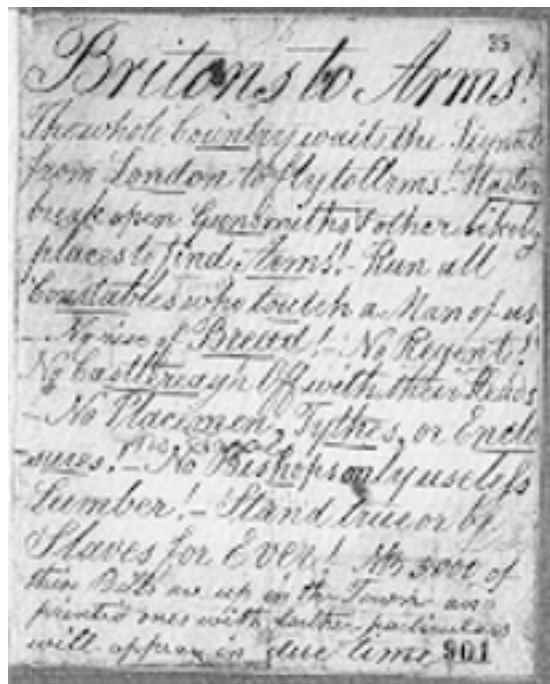 35
Britons to Arms!
The whole Country waits the Signal
from London to fly to Arms! Haste
break open Gunsmiths & other likely
places to find Arms! - Run all
Constables who toutch a Man of us
- No rise of Bread! - No Regent!
No Castlereagh Off with their Heads
- No Placemen, Tythes, or Enclo
sures! - No Bishops only useless
Lumber! - Stand true or be
Slaves for Ever! NB 5000 of
these Bills are up in the Town and
printed ones with further particulars
will appear in due time 901